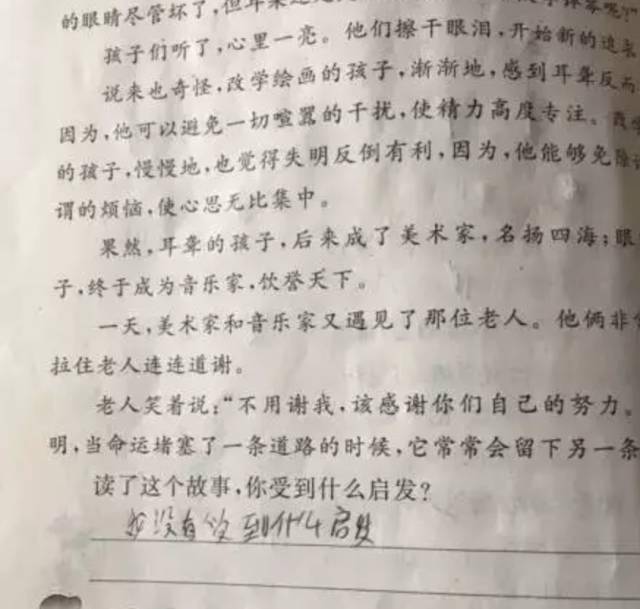 的眼睛尽管坏了，但耳朵
孩子们听了，心里一亮。他们擦干眼泪，开始新的追
说来也奇怪，改学绘画的孩子，渐渐地，感到耳聋反而
因为，他可以避免一切喧嚣的干扰，使精力高度专注。
的孩子，慢慢地，也觉得失明反倒有利，因为，他能够免除
谓的烦恼，使心思无比集中。
果然，耳聋的孩子，后来成了美术家，名扬四海；眼
子，终于成为音乐家，饮誉天下。
一天，美术家和音乐家又遇见了那位老人。他俩非
拉住老人连连道谢。
老人笑着说：“不用谢我，该感谢你们自己的努力。
明，当命运堵塞了一条道路的时候，它常常会留下另一条
读了这个故事，你受到什么启发？
我没有受到什么启发